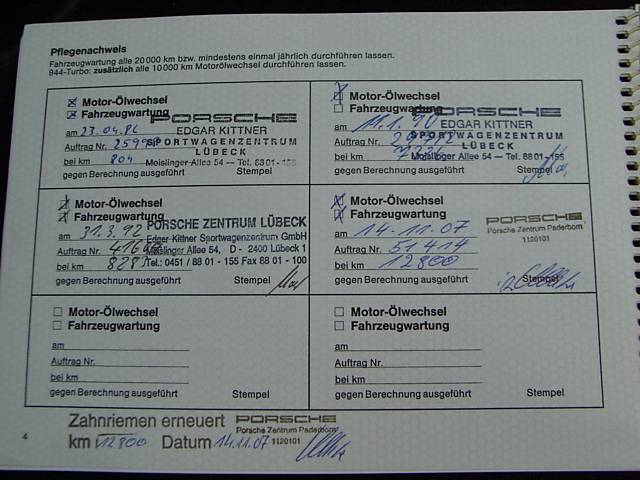 Pflegenachweis
Fahrzeugwartung alle 20 000 km bzw. mindestens einmal jährlich durchführen lassen.
944-Turbo: zusätzlich alle 10 000 km Motorölwechsel durchführen lassen.
Motor-Ölwechsel
Fahrzeugwartung
PORSCHE
am 23.04.
EDGAR KITTNER
SPORTWAGENZENTRUM
Auftrag Nr.
LÜBECK
bei km 804
Meislinger Allee 54 — Tel. 88 01 - 155
gegen Berechnung ausgeführt Stempel
Motor-Ölwechsel
Fahrzeugwartung
PORSCHE
am 11.1.90
EDGAR KITTNER
SPORTWAGENZENTRUM
Auftrag Nr.
LÜBECK
bei km
Moislinger Allee 54 — Tel. 88 01 - 155
gegen Berechnung ausgeführt Stempel
Motor-Ölwechsel
Fahrzeugwartung
PORSCHE ZENTRUM LÜBECK
am 31.3.92
Edgar Kittner Sportwagenzentrum GmbH
Auftrag Nr.
Moislinger Allee 54, D - 2400 Lübeck 1
bei km
Tel.: 0451 / 88 01 - 155 Fax 88 01 - 100
gegen Berechnung ausgeführt Stempel
Motor-Ölwechsel
Fahrzeugwartung
am 14.11.07
PORSCHE
Porsche Zentrum Paderborn
1120101
Auftrag Nr. 51414
bei km 12800
gegen Berechnung ausgeführt Stempel
Motor-Ölwechsel
Fahrzeugwartung
am
Auftrag Nr.
bei km
gegen Berechnung ausgeführt Stempel
Motor-Ölwechsel
Fahrzeugwartung
am
Auftrag Nr.
bei km
gegen Berechnung ausgeführt Stempel
Zahnriemen erneuert PORSCHE
Porsche Zentrum Paderborn
km 12800 Datum 14.11.07 1120101
4